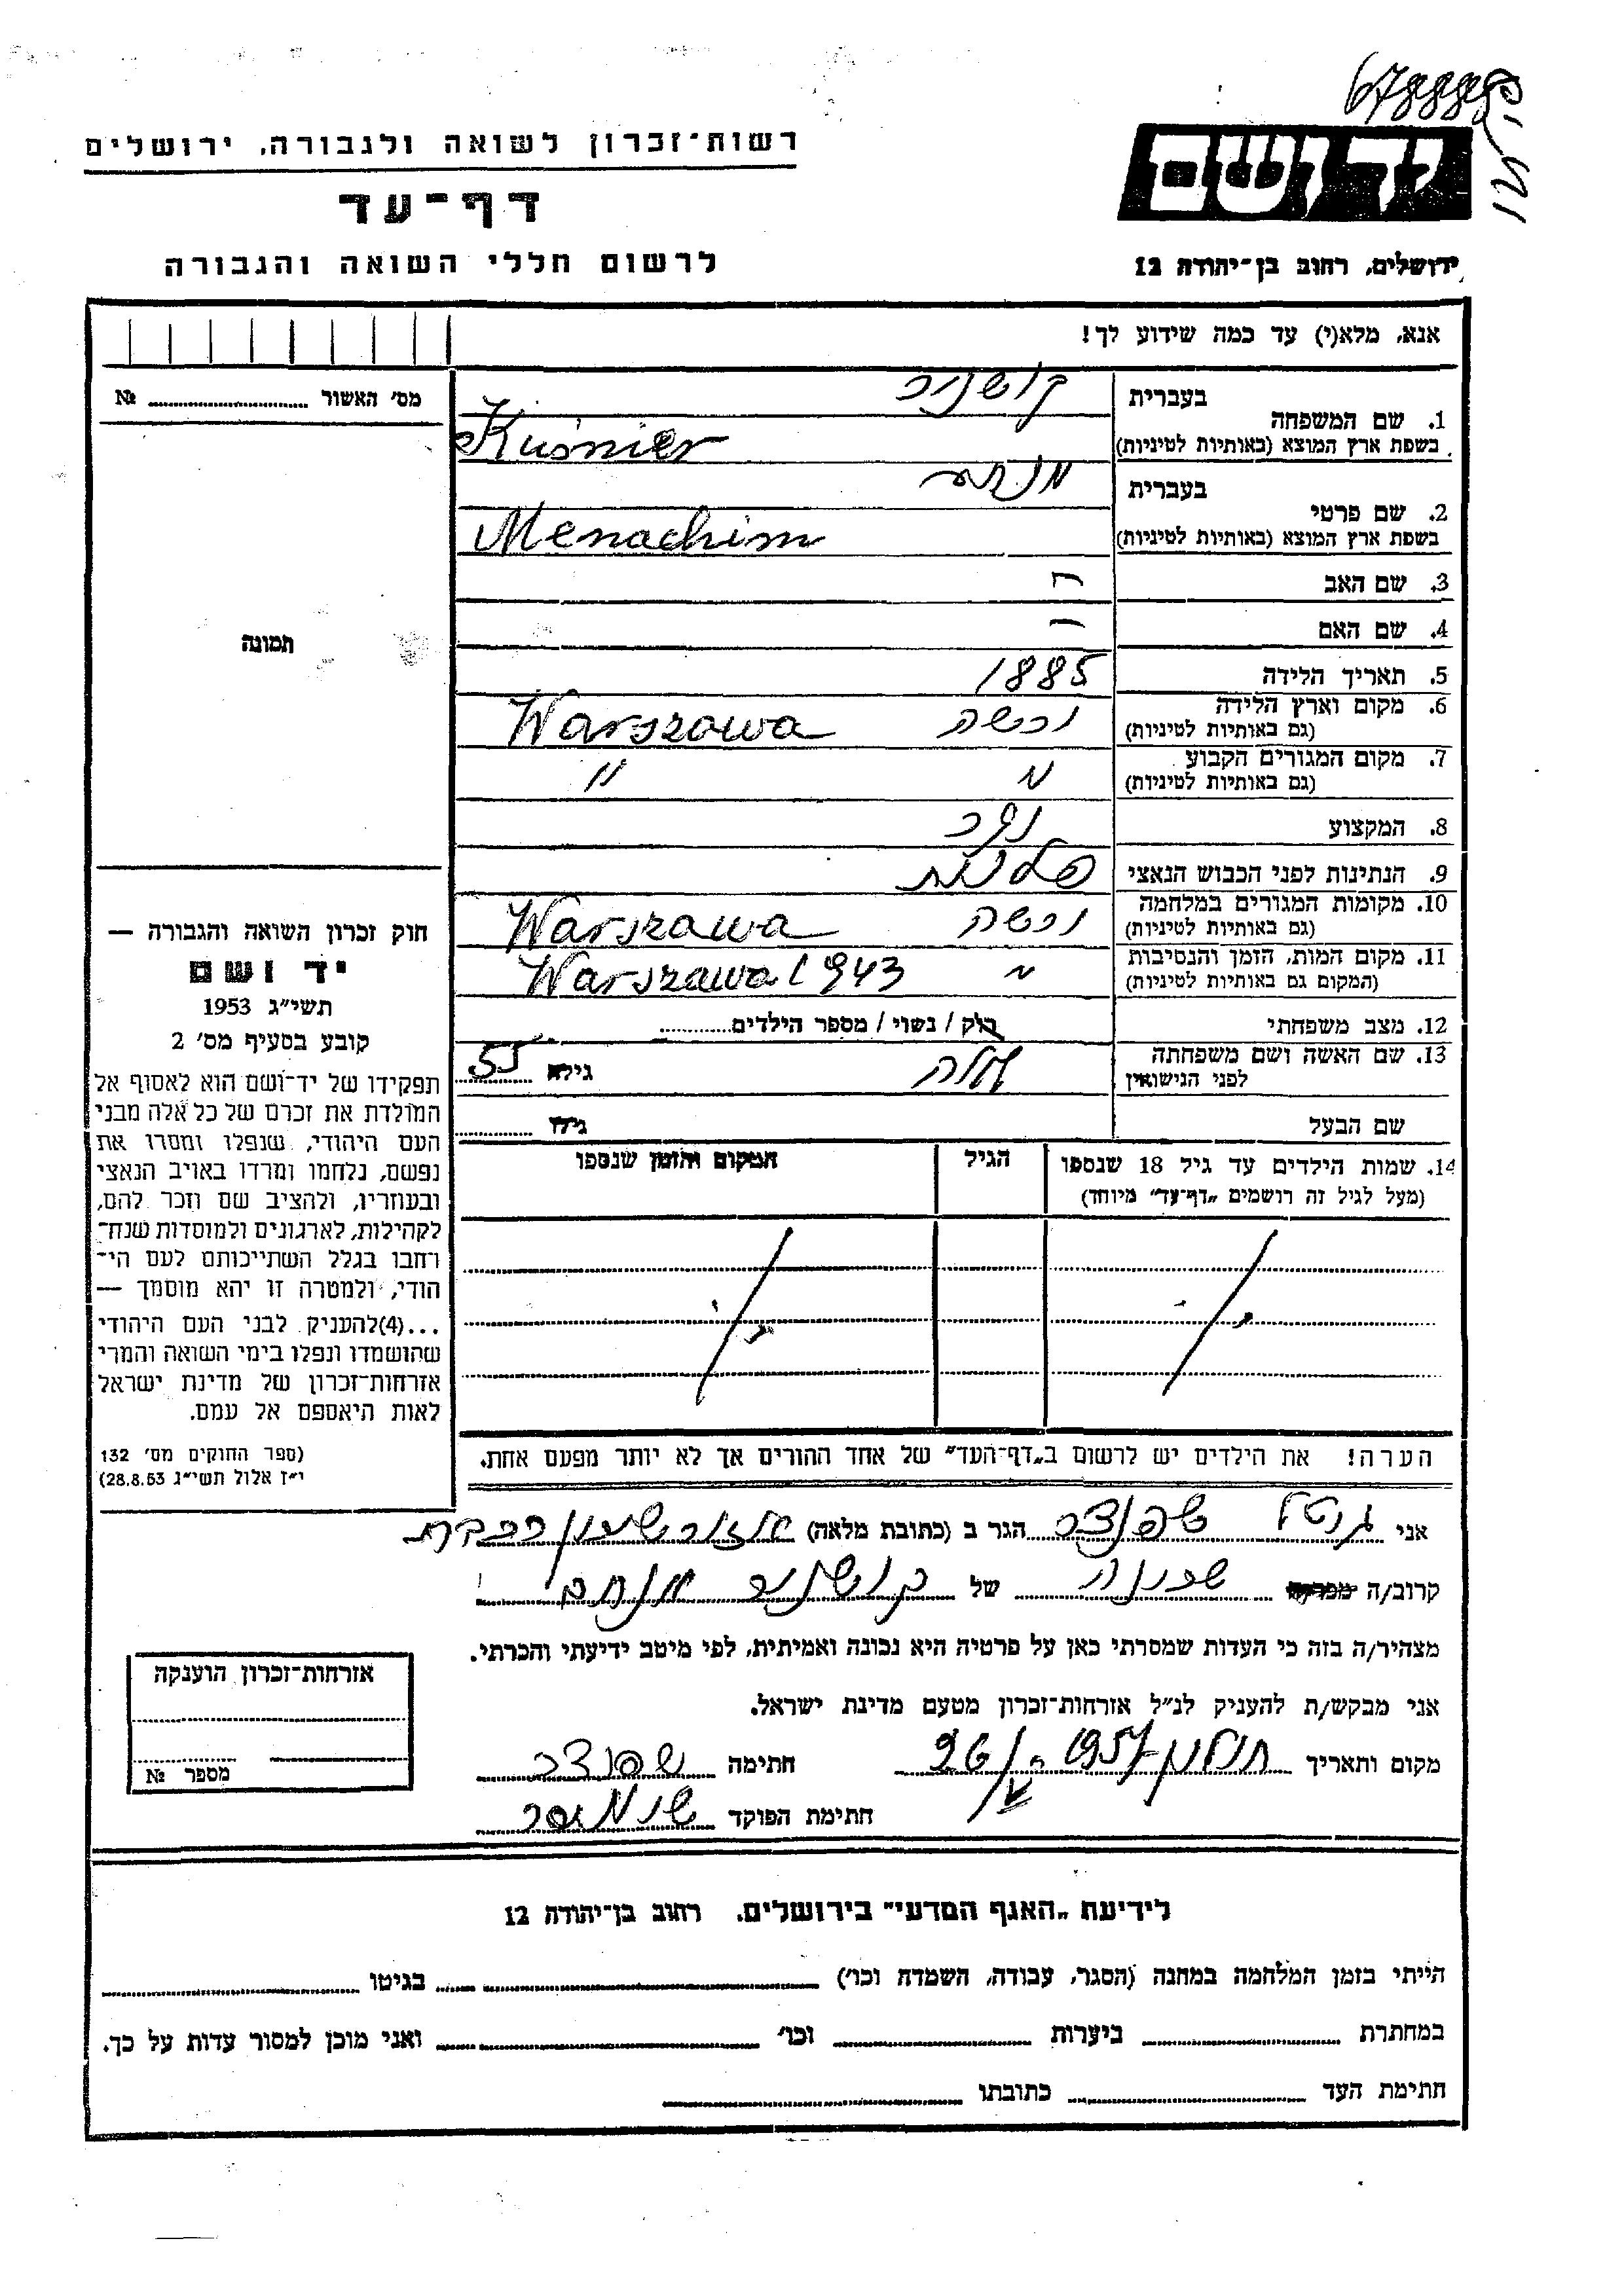 678888
רשות-זכרון לשואה ולגבורה, ירושלים
יד ושם
דף-עד
לרשום חללי השואה והגבורה
ירושלים, רחוב בן-יהודה 12
אנא, מלא(י) עד כמה שידוע לך!
מס' האשור № ........
1. שם המשפחה
בעברית
קושניר
בשפת ארץ המוצא (באותיות לטיניות)
Kuśnier
2. שם פרטי
בעברית
מנחם
בשפת ארץ המוצא (באותיות לטיניות)
Menachim
3. שם האב
4. שם האם
תמונה
5. תאריך הלידה 1885
6. מקום וארץ הלידה
(גם באותיות לטיניות)
ורשה Warszawa
7. מקום המגורים הקבוע
(גם באותיות לטיניות)
" "
8. המקצוע נגר
9. הנתינות לפני הכבוש הנאצי פולנית
10. מקומות המגורים במלחמה
(גם באותיות לטיניות)
ורשה Warszawa
11. מקום המות, הזמן והנסיבות
(המקום גם באותיות לטיניות)
" Warszawa 1943
12. מצב משפחתי רוק / נשוי / מספר הילדים........
13. שם האשה ושם משפחתה
לפני הנישואין
גילה 55
שם הבעל גילו ........
14. שמות הילדים עד גיל 18 שנספו
(מעל לגיל זה רושמים „דף-עד" מיוחד)
הגיל
המקום והזמן שנספו
חוק זכרון השואה והגבורה —
יד ושם
תשי"ג 1953
קובע בסעיף מס' 2
תפקידו של יד-ושם הוא לאסוף אל
המולדת את זכרם של כל אלה מבני
העם היהודי, שנפלו ומסרו את
נפשם, נלחמו ומרדו באויב הנאצי
ובעוזריו, ולהציב שם וזכר להם,
לקהילות, לארגונים ולמוסדות שנח-
רבו בגלל השתייכותם לעם הי-
הודי, ולמטרה זו יהא מוסמך —
...(4)להעניק לבני העם היהודי
שהושמדו ונפלו בימי השואה והמרי
אזרחות-זכרון של מדינת ישראל
לאות היאספם אל עמם.
(ספר החוקים מס' 132
י"ז אלול תשי"ג 28.8.53)
הערה! את הילדים יש לרשום ב„דף-העד" של אחד ההורים אך לא יותר מפעם אחת.
אני גיטל שפונדר הגר ב (כתובת מלאה)
קרוב/ה מכר/ה שכונה של קושניר מנחם
מצהיר/ה בזה כי העדות שמסרתי כאן על פרטיה היא נכונה ואמיתית, לפי מיטב ידיעתי והכרתי.
אני מבקש/ת להעניק לנ"ל אזרחות-זכרון מטעם מדינת ישראל.
מקום ותאריך חולון 26/V 1957 חתימה שפונדר
חתימת הפוקד
אזרחות-זכרון הוענקה
מספר №
לידיעת „האגף המדעי" בירושלים, רחוב בן-יהודה 12
הייתי בזמן המלחמה במחנה (הסגר, עבודה, השמדה וכו') ........ בגיטו ........
במחתרת ........ ביערות ........ וכו' ........ ואני מוכן למסור עדות על כך.
חתימת העד ........ כתובתו ........